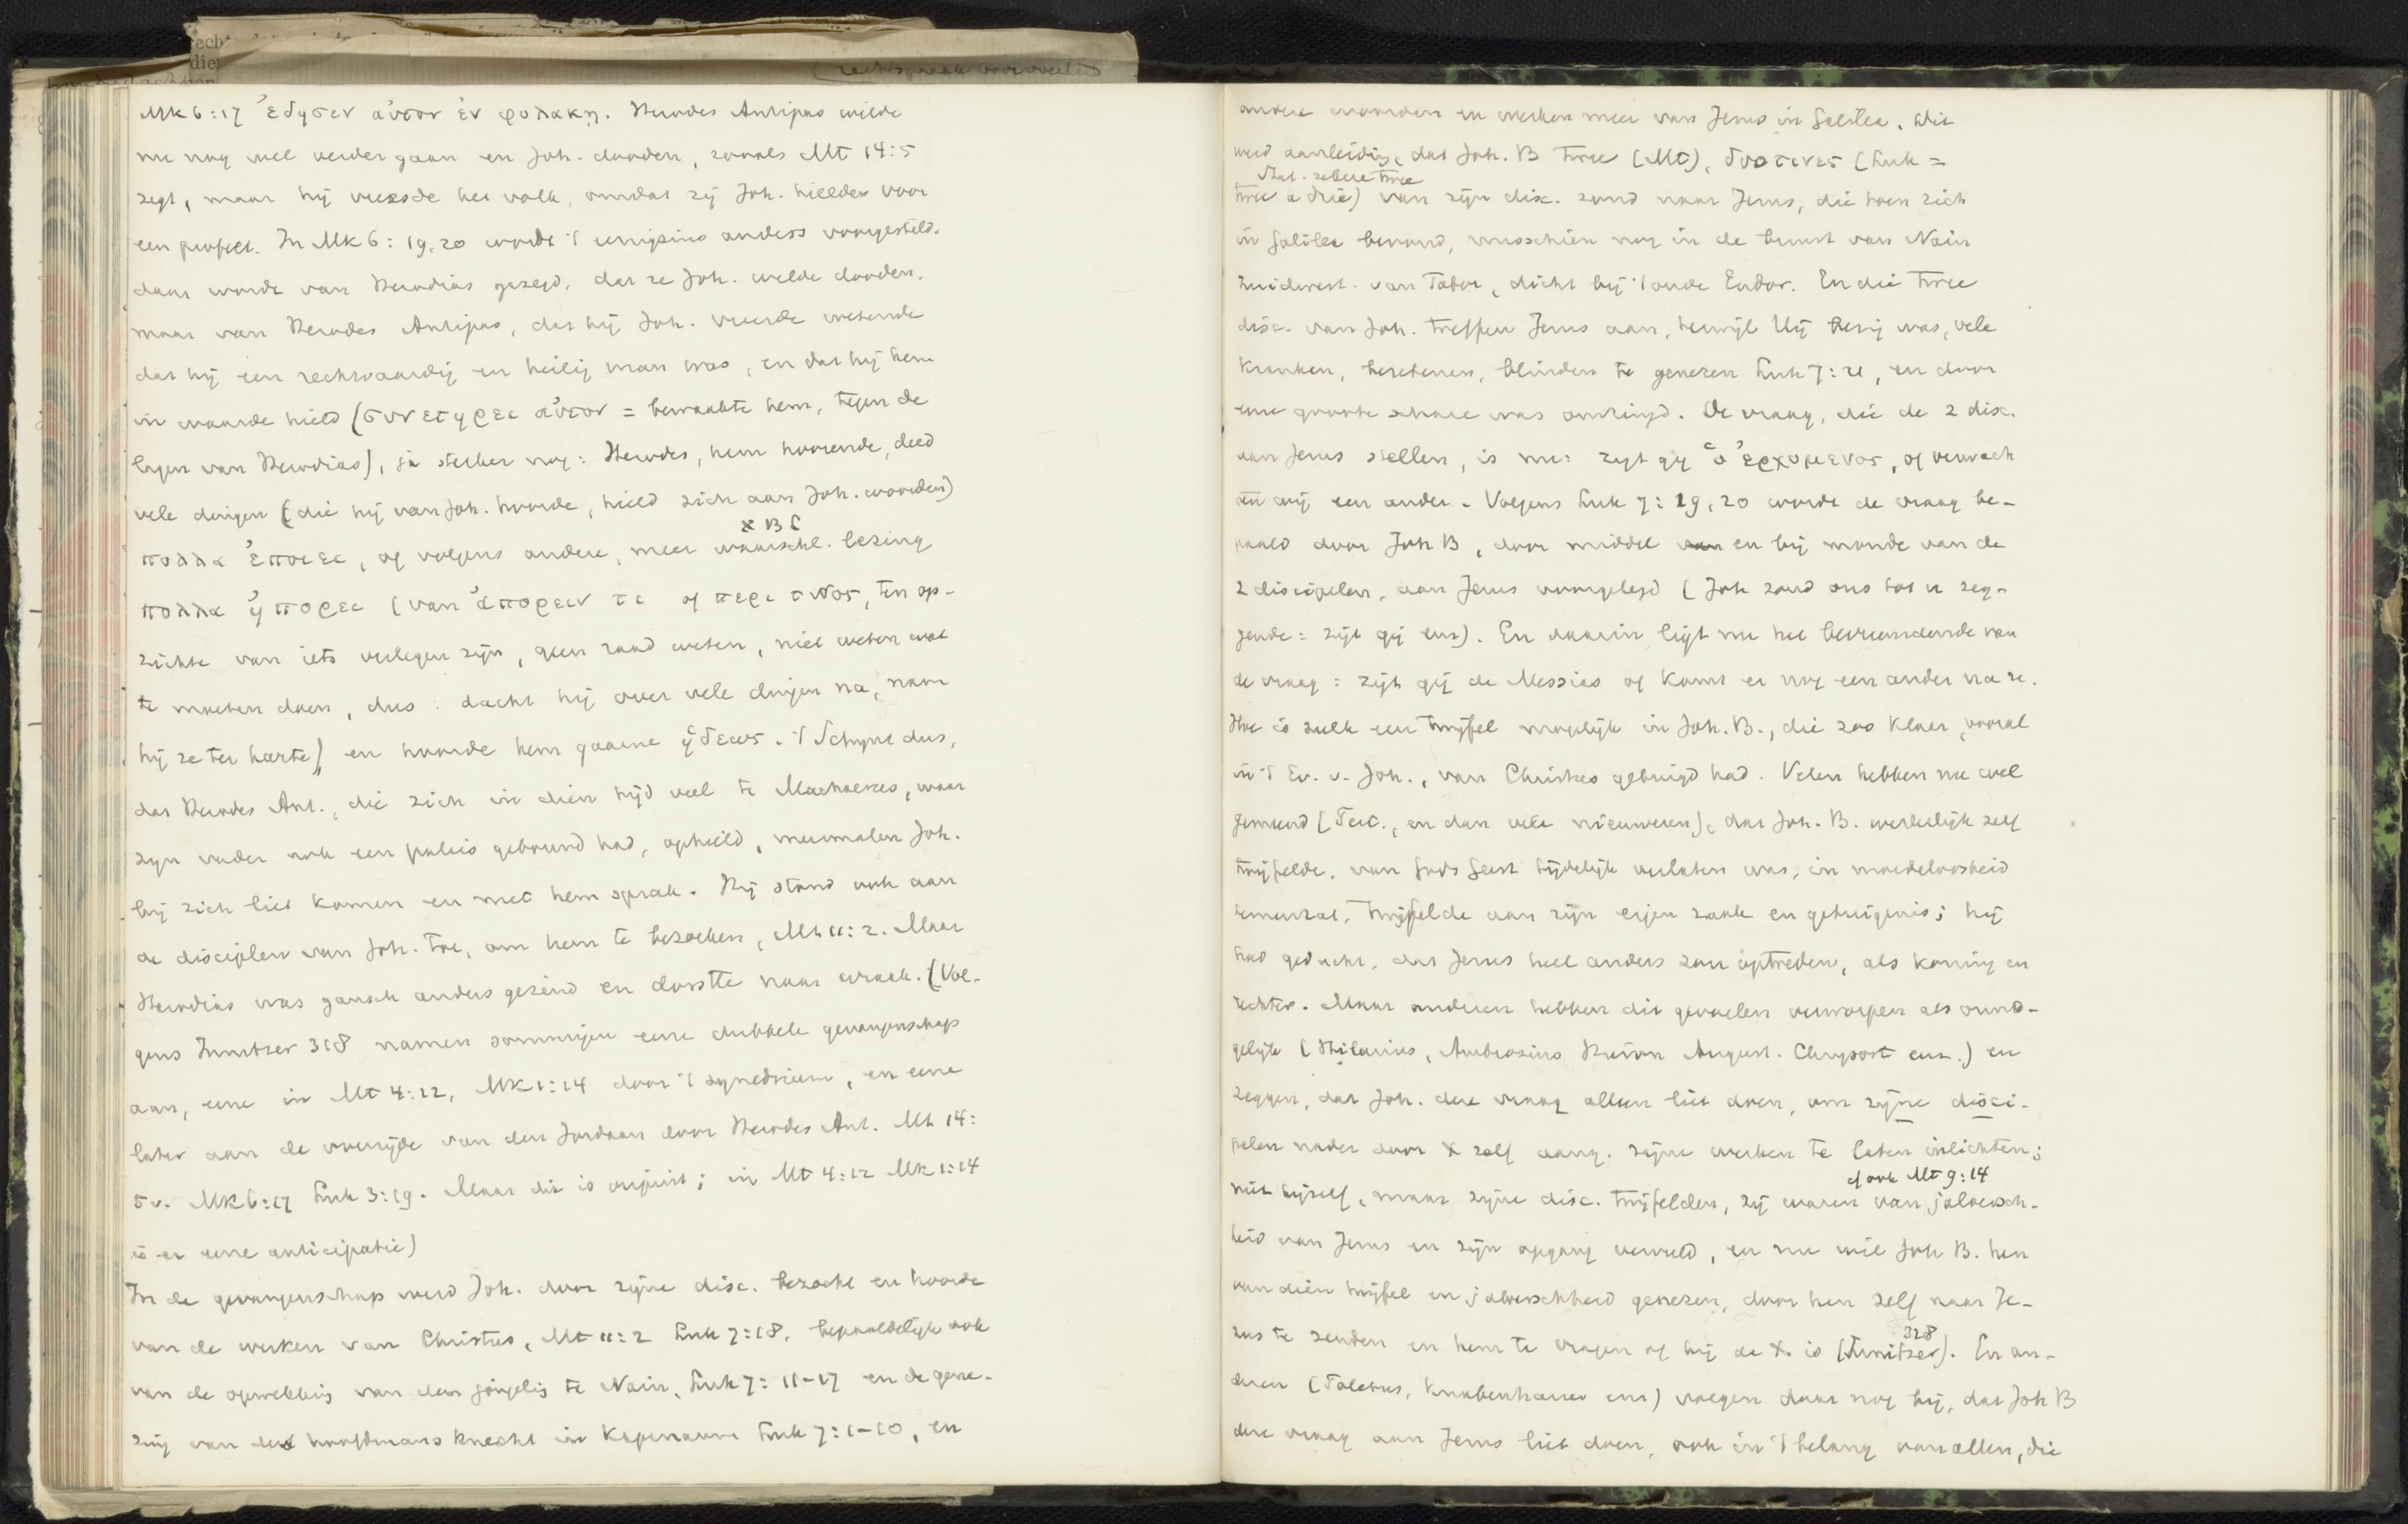 Mk 6:17 ἐδησεν αὐτον ἐν φυλακῃ. Herodes Antipas wilde
nu nog wel verder gaan en Joh. dooden, zooals Mt 14:5
zegt, maar hij vreesde het volk, omdat zij Joh. hielden voor
een profeet. In Mk 6: 19.20 wordt 't eenigzins anders voorgesteld.
daar wordt van Herodias gezegd, dat ze Joh. wilde dooden.
maar van Herodes Antipas, dat hij Joh. vreesde wetende
dat hij een rechtvaardig en heilig man was, en dat hij hem
in waarde hield (συνετηρει αὐτον = bewaakte hem, tegen de
lagen van Herodias), ja sterker nog: Herodes, hem hoorende, deed
vele dingen (die hij van Joh. hoorde, hield zich aan Joh. woorden)
א B L
πολλα ἐποιει, of volgens andere, meer waarschl. lezing
πολλα ἠπορει (van ἀπορειν τι of περι τινος, ten op-
zichte van iets verlegen zijn, geen raad weten, niet weten wat
te moeten doen, dus: dacht hij over vele dingen na, nam
hij ze ter harte) en hoorde hem gaarne ἡδεως. 't Schijnt dus,
dat Herodes Ant., die zich in dien tijd veel te Machaerus, waar
zijn vader ook een paleis gebouwd had, ophield, meermalen Joh.
bij zich liet komen en met hem sprak. Hij stond ook aan
de discipelen van Joh. toe, om hem te bezoeken, Mt 11:2. Maar
Herodias was gansch anders gezind en dorstte naar wraak. (Vol-
gens Innitzer 318 namen sommigen eene dubbele gevangenschap
aan, eene in Mt 4:12, Mk 1:14 door 't synedrium, en eene
later aan de overzijde van den Jordaan door Herodes Ant. Mt 14:
5v. Mk 6:17 Luk 3:19. Maar dit is onjuist; in Mt 4:12 Mk 1:14
is er eene anticipatie)
In de gevangenschap werd Joh. door zijne disc. bezocht en hoorde
van de werken van Christus, Mt 11:2 Luk 7:18, bepaaldelijk ook
van de opwekking van den jongeling te Nain, Luk 7: 11-17 en de gene-
zing van den hoofdmans knecht in Kapernaum Luk 7:1-10, en
andere woorden en werken meer van Jezus in Galilea. Dit
werd aanleiding, dat Joh. B twee (Mt), δυο τινες (Luk =
Stat. zekere twee
twee a drie) van zijn disc. zond naar Jezus, die toen zich
in Galilea bevond, misschien nog in de buurt van Nain
zuidwest. van Tabor, dicht bij 't oude Endor. En die twee
disc. van Joh. treffen Jezus aan, terwijl Hij bezig was, vele
kranken, bezetenen, blinden te genezen Luk 7:21, en door
eene groote schare was omringd. De vraag, die de 2 disc.
aan Jezus stellen, is nu: zijt gij ὁ ἐρχομενος, of verwach
ten wij een ander. Volgens Luk 7: 19, 20 wordt de vraag be-
paald door Joh B, door middel van en bij monde van de
2 discipelen, aan Jezus voorgelegd (Joh zond ons tot u zeg-
gende: zijt gij enz). En daarin ligt nu het bevreemdende van
de vraag: zijt gij de Messias of komt er nog een ander na u.
Hoe is zulk een twijfel mogelijk in Joh. B., die zoo klaar, vooral
in 't Ev. v. Joh., van Christus getuigd had. Velen hebben nu wel
gemeend (Tert., en dan vele nieuweren), dat Joh. B. werkelijk zelf
twijfelde, van Gods Geest tijdelijk verlaten was, in moedeloosheid
terneerzat, twijfelde aan zijn eigen zaak en getuigenis; hij
had gedacht, dat Jezus heel anders zou optreden, als koning en
rechter. Maar anderen hebben dit gevoelen verworpen als onmo-
gelijk (Hilarius, Ambrosius Hieron August. Chrysost enz.) en
zeggen, dat Joh. deze vraag alleen liet doen, om zijne disci-
pelen nader door X zelf aang. zijne werken te laten inlichten;
cf ook Mt 9:14
niet hijzelf, maar zijne disc. twijfelden, zij waren van jaloersch-
heid van Jezus en zijn opgang vervuld, en nu wil Joh B. hen
van dien twijfel en jaloerschheid genezen, door hen zelf naar Je-
328
zus te zenden en hem te vragen of hij de X. is (Innitzer). En an-
deren (Toletus, Knabenbauer enz) voegen daar nog bij, dat Joh B
deze vraag aan Jezus liet doen, ook in 't belang van allen, die